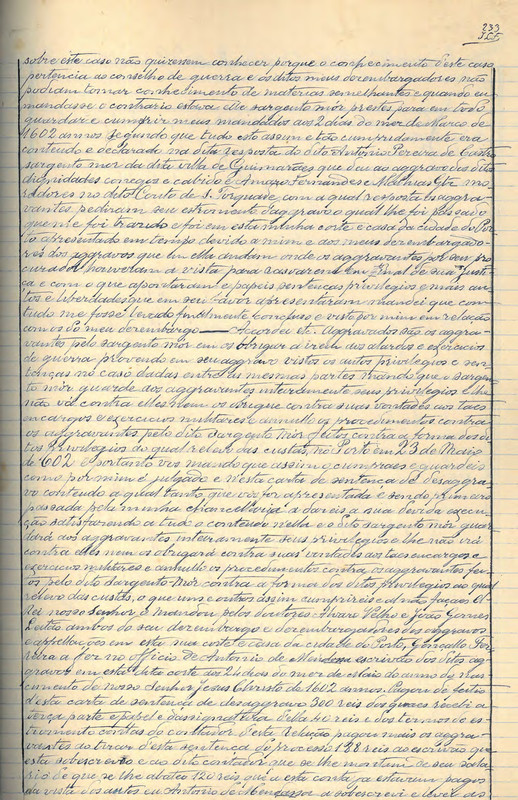 233
sobre este caso não quizessem conhecer porque o conhecimento d'este caso
pertencia ao conselho de guerra e os ditos meus dezembargadores não
podiam tomar conhecimento de materias semelhantes e quando eu
mandasse o contrario estava elle sargento mór prestes para em tudo
guardar e cumprir meus mandados aos 2 dias do mez de Março de
1602 annos segundo que tudo este assim e tão cumpridamente era
contheudo e declarado na dita resposta do dito Antonio Pereira de Castro
sargento mór da dita villa de Guimarães que deu ao aggravo dos ditos
dignidades conegos e cabido e Amaro Fernandes e Mathias Glz mo-
radores no dito Couto de S. Torquade com a qual resposta os aggra-
vantes pediram seu estromento d'aggravo o qual lhe foi passado
que me foi trazido e foi em esta minha corte e casa da cidade do Por-
to apresentado em tempo devido a mim e aos meus dezembargado-
res dos aggravos que em ella andam onde os aggravantes por seu pro-
curador houveram a vista para rasoarem em final de sua justi-
ça e com o que apontaram e papeis sentenças privilegios e mais au-
tos e liberdades que em seu favor apresentaram mandei que com
tudo me fosse levado finalmente concluso e visto por mim em relação
com os do meu dezembargo — Acordei etc. Aggravados são os aggra-
vantes pelo sargento mór em os obrigar a irem aos alardos e exercicios
de guerra provendo em seu aggravo vistos os autos privilegios e sen-
tenças no caso dadas entre as mesmas partes mando que o sargen-
to mór guarde aos aggravantes inteiramente seus privilegios e lhe
não vá contra elles nem os obrigue contra suas vontades aos taes
encargos e exercicios militares e annullo os procedimentos contra
os aggravantes pelo dito sargento mór feitos contra a forma dos di-
tos privilegios ao qual relevo das custas, no Porto em 23 de Maio
de 602 e portanto vos mando que assim o cumpraes e guardeis
como por mim é julgado e n'esta carta de sentença de desaggra-
vo contendo a qual tanto que vos for apresentada e sendo primeiro
passada pela minha chancellaria a dareis a sua devida execu-
ção satisfazendo a tudo o contendo n'ella e o dito sargento mór guar-
dará aos aggravantes inteiramente seus privilegios e lhe não irá
contra elles nem os obrigará contra suas vontades aos taes encargos e
exercicios militares e annullo os procedimentos contra os aggravantes fei-
tos pelo dito sargento mór contra a forma dos ditos privilegios ao qual
relevo das custas, o que uns e outros assim cumprireis e al não façaes El
Rei nosso Senhor o mandou pelos doutores Alvaro Velho e João Gomes
Leitão ambos do seu dezembargo e dezembargadores dos aggravos
e appellações em esta sua corte e casa da cidade do Porto, Gonçallo Fer-
reira a fez no officio de Antonio de escrivão dos ditos ag-
gravos em esta dita corte aos 24 dias do mez de maio do anno do Nas-
cimento de Nosso Senhor Jesus Christo de 1602 annos. Pagou de feitio
d'esta carta de sentença de desaggravo 300 reis dos quaes recebi a
terça parte e papel e d'assignatura d'ella 40 reis e dos termos do es-
tromento contas do contador d'esta relação pagou mais os aggra-
vantes do tirar d'esta sentença do processo 128 reis ao escrivão que
esta sobescreveu e ao dito contador que se lhe montam de seu sala-
rio de que se lhe abateo 120 reis que a esta conta já estavam pagos
da vista dos autos eu Antonio de a sobescrevi e